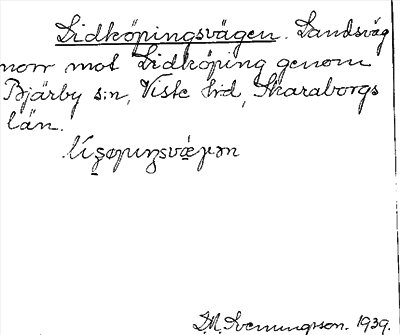 Lidköpingsvägen. Landsväg
norr mot Lidköping genom
Bjärby s:n, Viste hd, Skaraborgs
län.
D.M. Svenungsson. 1939.